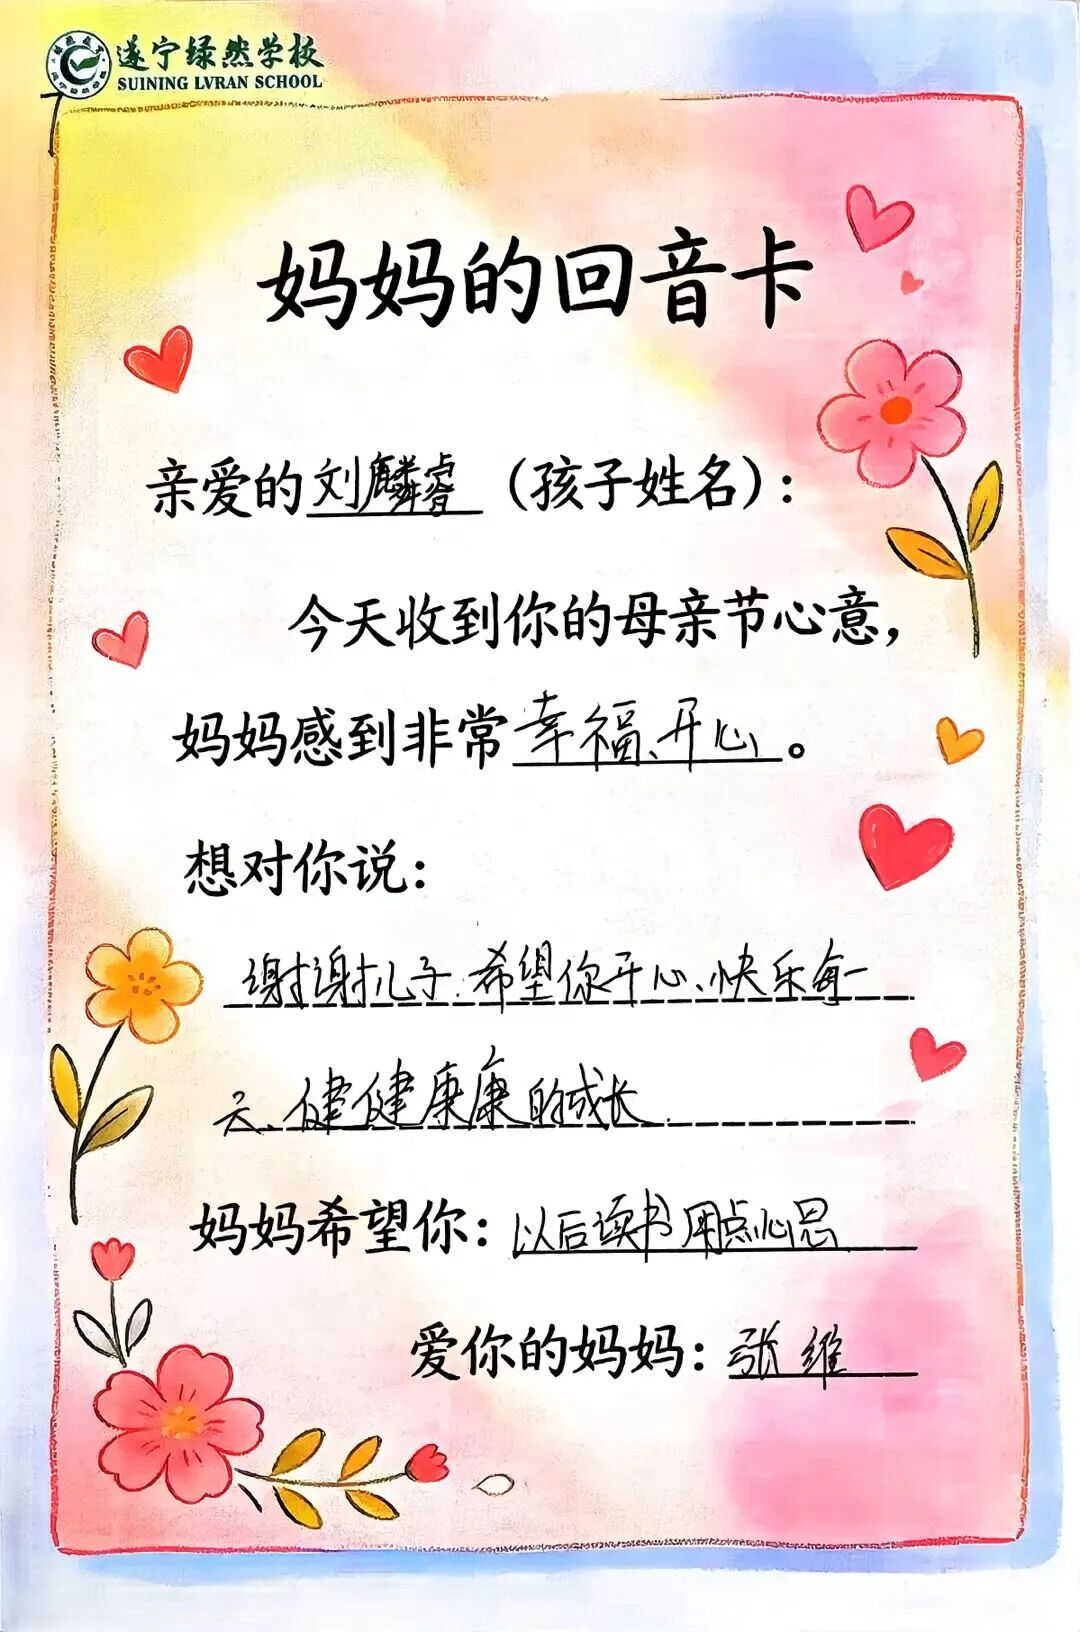 遂宁绿然学校
SUINING LVRAN SCHOOL
妈妈的回音卡
亲爱的刘麟睿（孩子姓名）：
今天收到你的母亲节心意，
妈妈感到非常幸福、开心。
想对你说：
谢谢儿子.希望你开心、快乐每一
天、健健康康的成长.
妈妈希望你：以后读书用点心思.
爱你的妈妈：张维